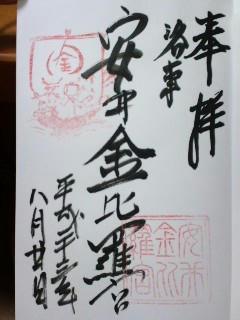 奉拝
洛東
安井金比羅宮
平成二十三年
八月廿日
金
安井
金比
羅宮